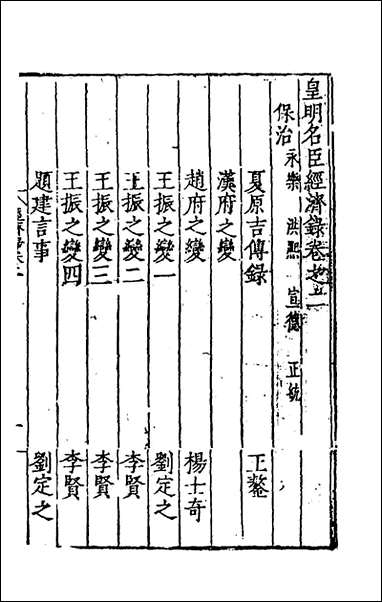 皇明名臣經濟錄卷之二
保治 永樂 洪熙 宣德 正統
夏原吉傳錄 王鏊
漢府之變
趙府之變 楊士奇
王振之變一 劉定之
王振之變二 李賢
王振之變三 李賢
王振之變四 李賢
題建言事 劉定之